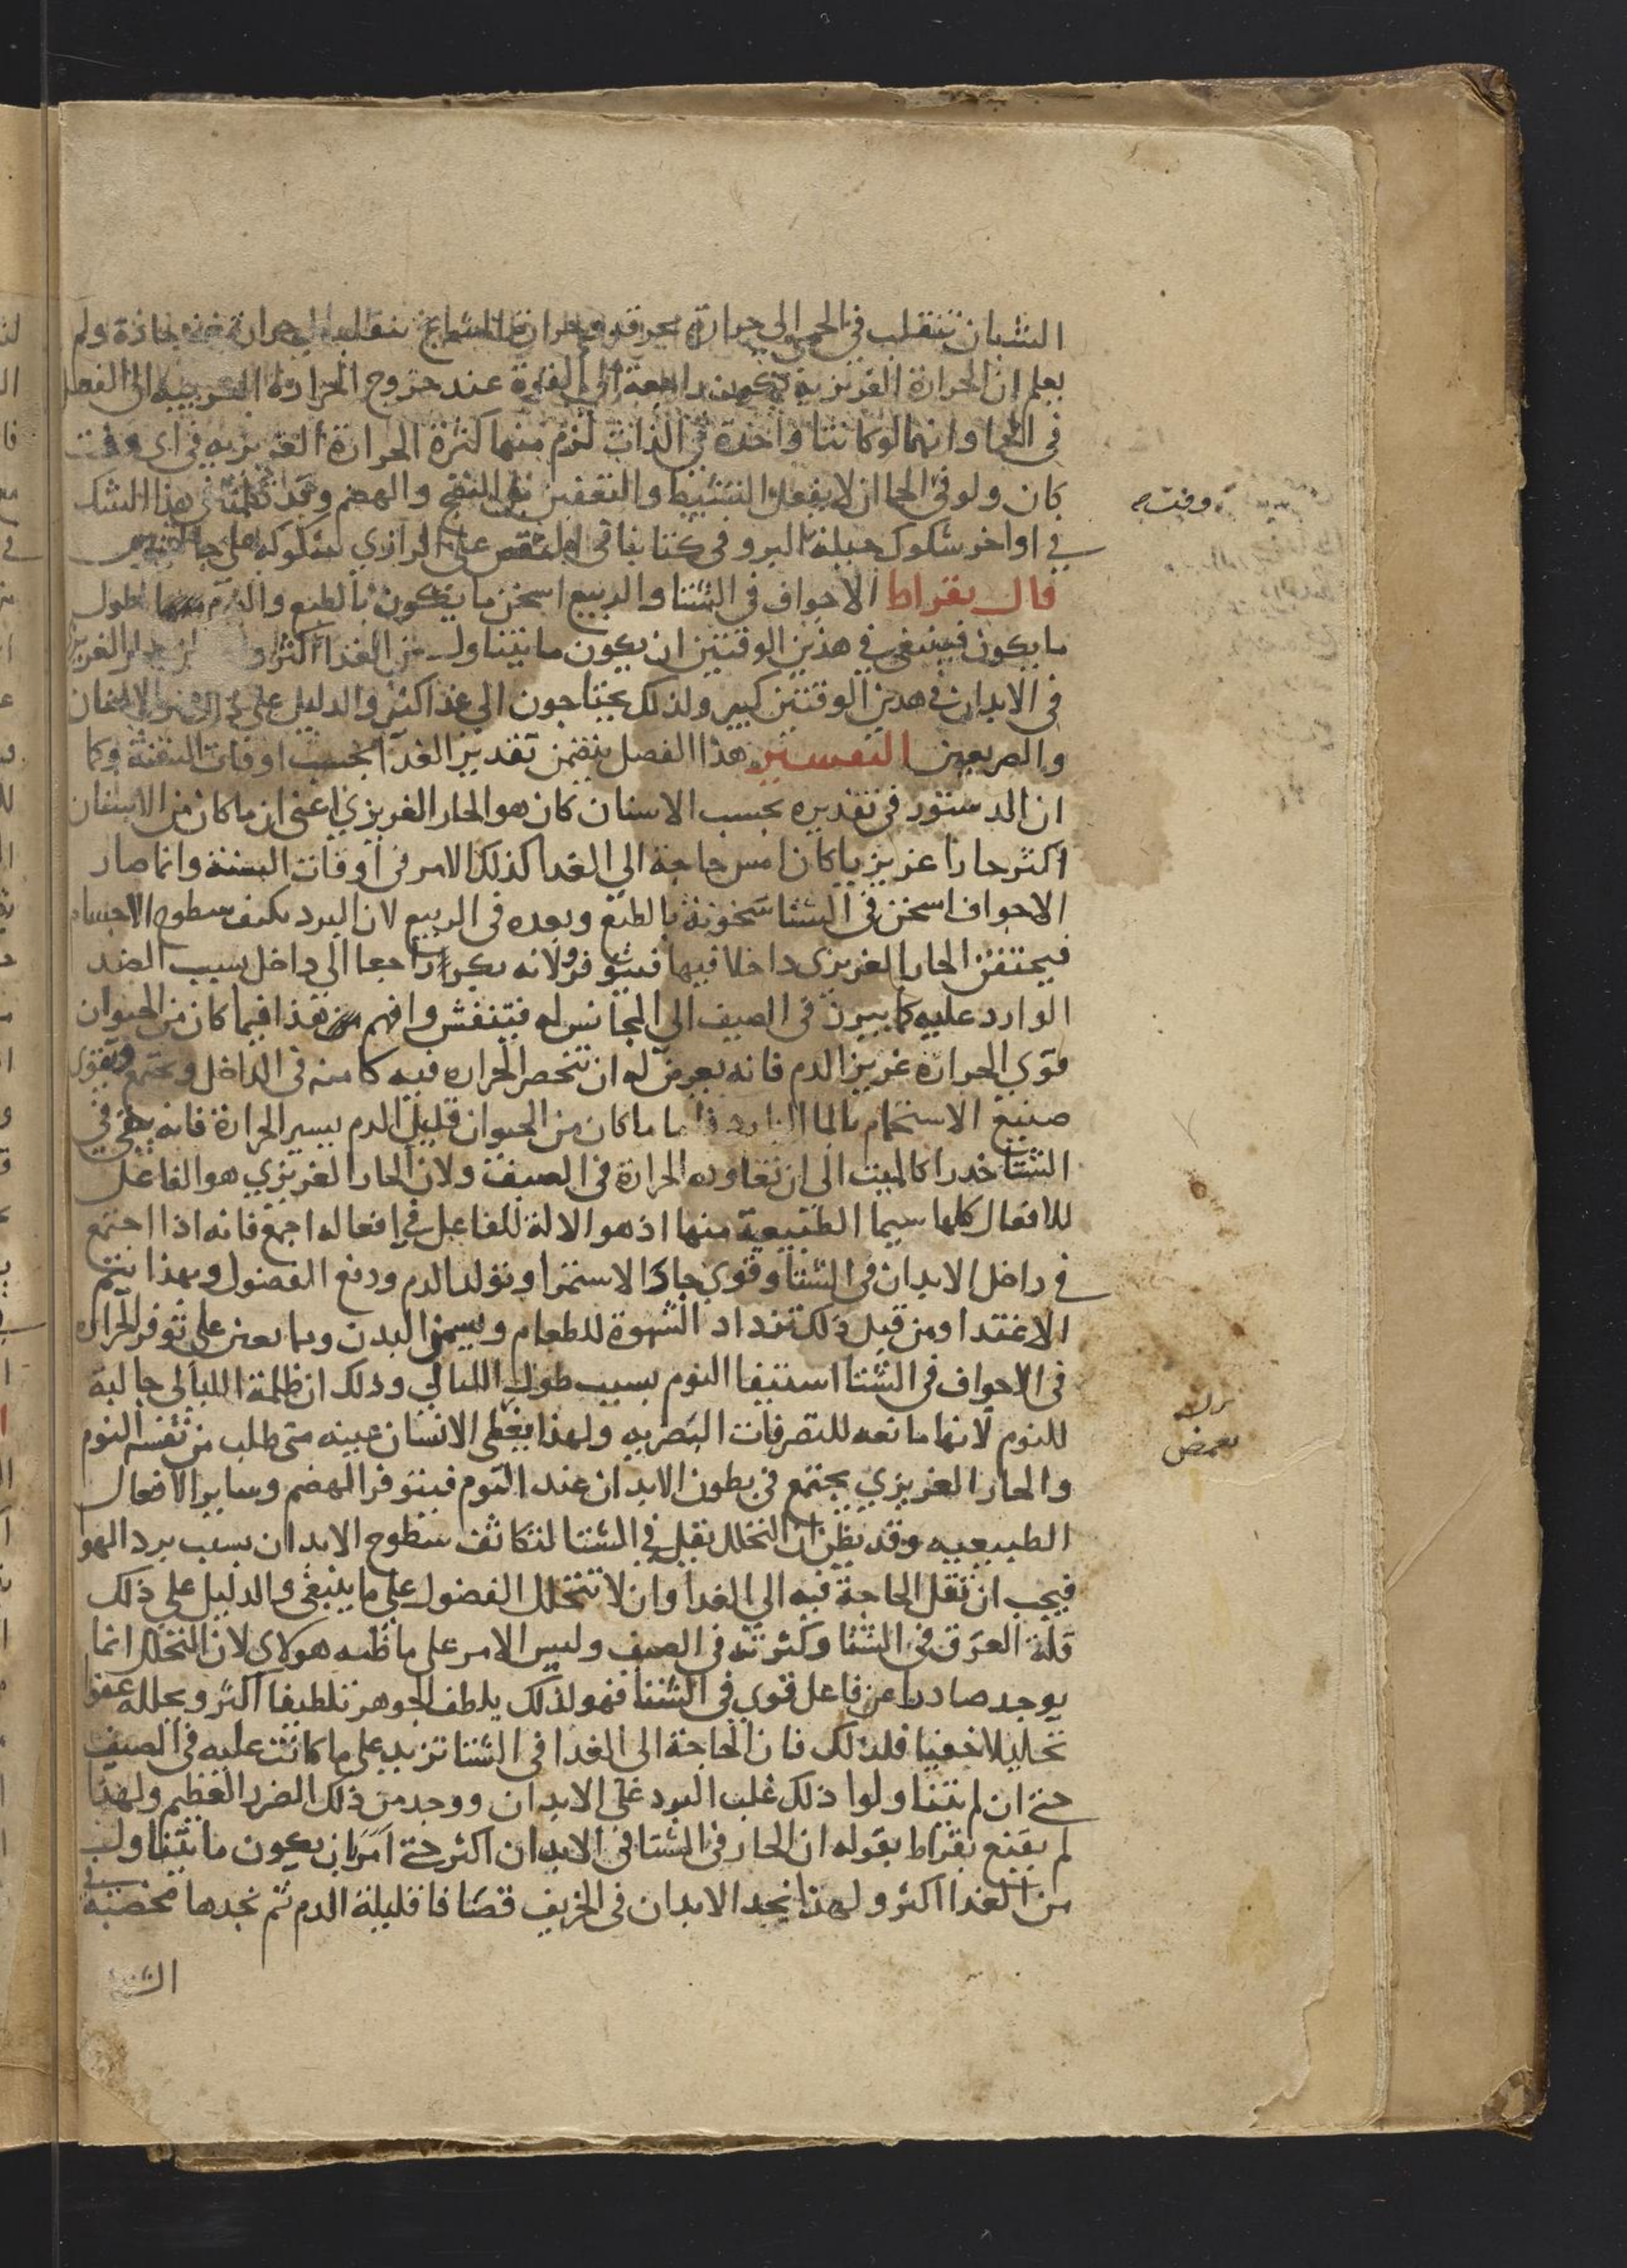 الشبان تنقلب في الحمى الى حرارة محرقة وحرارة المشايخ تنقلب الى حرارة حادة ولم
يعلم ان الحرارة الغريزية تكون راجعة الى القوة عند خروج الحرارة الغريبة الى الفعل
في الحما وانهما لو كانتا واحدة في الذات لزم منها كثرة الحرارة الغريزيه في اي وقت
كان ولو في الحما ان لا يفعل التشيط والتعفين بل النضج والهضم وقد تكلمنا في هذا الشك
في اواخر شكوك جبلة البرو وفي كتابنا في على الرازي لشكوكه على جالينوس
قال بقراط الاجواف في الشتا والربيع اسخن ما يكون بالطبع والنوم اطول
ما يكون فينبغي في هذين الوقتين ان يكون ما يتناول من الغذا اكثر الحار الغريزي
في الابدان في هذين الوقتين كبير ولذلك يحتاجون الى غذا اكثر والدليل على ذلك الاسنان
والصريعين التفسير هذا الفصل يتضمن تقدير الغذا بحسب اوقات السنة وكما
ان الدستور في تقديره بحسب الاسنان كان هو الحار الغريزي اعني ان ما كان من الاسنان
اكثر حارا غريزيا كان امس حاجة الي الغدا كذلك الامر في اوقات السنة وانما صار
الاجواف اسخن في الشتا سخونة بالطبع وبعده في الربيع لان البرد يكثف سطوح الاجسام
فيحتقن الحار الغريزي داخلا فيها فيتوفر ولانه يكر راجعا الي داخل بسبب الضد
الوارد عليه كما يبرز في الصيف الى المجانس له فيتنفش وافهم هذا فيما كان من الحيوان
قوي الحرارة غزيز الدم فانه يعرض له ان تنحصر الحراره فيه كامنه في الداخل ويجتمع ويقوى
صنيع الاستحمام بالما البارد فاما ما كان من الحيوان قليل الدم يسير الحرارة فانه يبقى في
الشتا خدرا كالميت الى ان تعاوده الحرارة في الصيف ولان الحار الغريزي هو الفاعل
للافعال كلها سيما الطبيعية منها اذ هو الالة للفاعل في افعاله اجمع فانه اذا اجتمع
في داخل الابدان في الشتا وقوي جاد الاستمرا وتولد الدم ودفع الفضول وبهذا يتم
الاغتدا ومن قبل ذلك تزداد الشهوة للطعام ويسمن البدن ومما يعين على توفر الحراره
في الاجواف في الشتا استيفا النوم بسبب طول الليالي وذلك ان ظلمة الليالي جالبة
للنوم لانها مانعه للتصرفات البصريه ولهذا يغطي الانسان عينه متى طلب من نفسه النوم
والحار الغريزي يجتمع في بطون الابدان عند النوم فيتوفر الهضم وساير الافعال
الطبيعيه وقد يظن ان التحلل يقل في الشتا لتكاثف سطوح الابدان بسبب برد الهوا
فيجب ان تقل الحاجة فيه الي الغدا وان لا تتحلل الفضول على ما ينبغي والدليل على ذلك
قلة العرق في الشتا وكثرته في الصيف وليس الامر على ما ظنه هولاي لان التحلل انما
يوجد صادرا عن فاعل قوي في الشتا فهو لذلك يلطف الجوهر تلطيفا اكثر ويحلله عفوا
تحليلا خفيا فلذلك فان الحاجة الى الغدا في الشتا تزيد على ما كانت عليه في الصيف
حتى ان لم يتناولوا ذلك غلب البرد على الابدان ووجد من ذلك الضرر العظيم ولهذا
لم يقنع بقراط بقوله ان الحار في الشتا في الابدان اكثر حتى امر بان يكون ما يتناول
من الغدا اكثر ولهذا نجد الابدان في الخريف قصافا قليلة الدم ثم نجدها مخصبة في
الشتا
وقت صح
يغمض